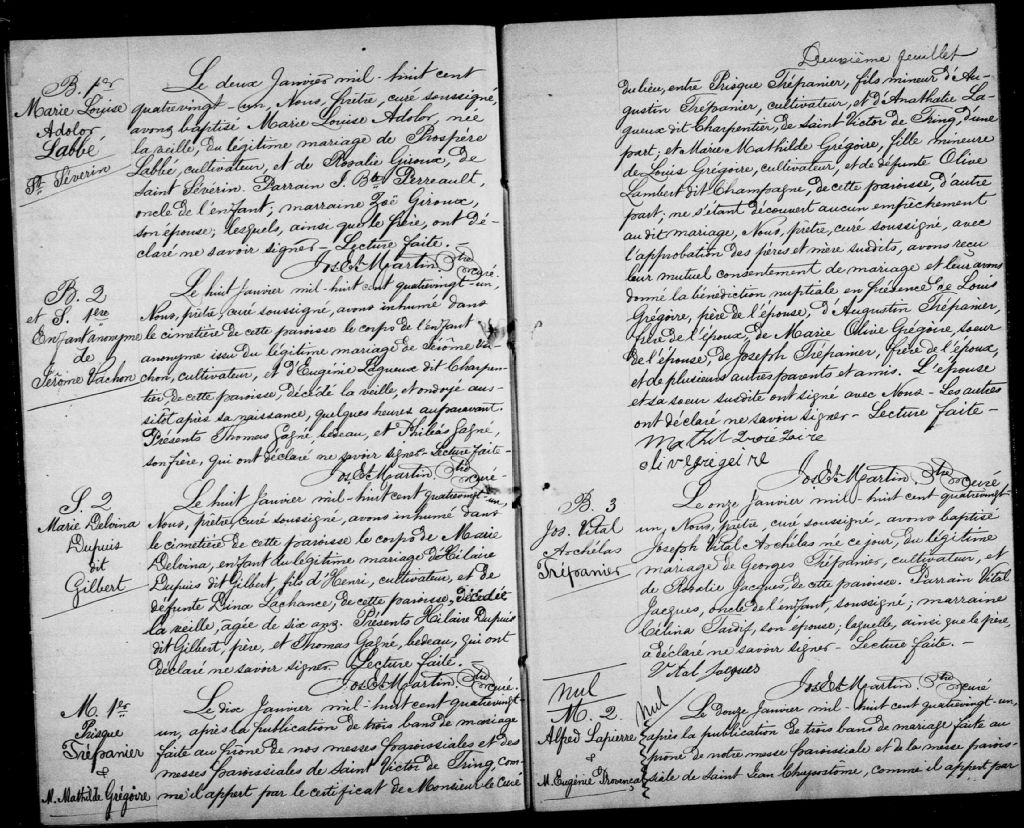 B. 1er
Marie Louise
Adolor
Labbé
St Séverin
Le deux Janvier mil-huit cent
quatrevingt-un, Nous, prêtre, curé soussigné,
avons baptisé Marie Louise Adolor, née
la veille, du légitime mariage de Prospère
Labbé, cultivateur, et de Rosalie Giroux, de
Saint Séverin. Parrain J. Bte Perreault,
oncle de l'enfant; marraine Zoë Giroux,
son épouse; lesquels, ainsi que le père, ont dé-
claré ne savoir signer - Lecture faite. -
Jos Et Martin Ptre
curé.
B. 2
et S. 1ère
Enfant anonyme
de
Jérôme Vachon
Le huit Janvier mil-huit cent quatrevingt-un,
Nous, prêtre, curé soussigné, avons inhumé dans
le cimetière de cette paroisse le corps de l'enfant
anonyme issu du légitime mariage de Jérôme Va-
chon, cultivateur, et d'Eugénie Lagueux dit Charpen-
tier, de cette paroisse, décédé la veille, et ondoyé aus-
sitôt après sa naissance, quelques heures auparavant.
Présents Thomas Gagné, bedeau, et Philéas Gagné,
son frère, qui ont déclaré ne savoir signer - Lecture faite -
Jos Et Martin Ptre
curé -
S. 2
Marie Delvina
Dupuis
dit
Gilbert
Le huit Janvier mil-huit cent quatrevingt-un
Nous, prêtre, curé soussigné, avons inhumé dans
le cimetière de cette paroisse le corps de Marie
Delvina, enfant du légitime mariage d'Hilaire
Dupuis dit Gilbert, fils d'Henri, cultivateur, et de
défunte Lina Lachance, de cette paroisse, décédée
la veille, agée de six ans. Présents Hilaire Dupuis
dit Gilbert, père, et Thomas Gagné, bedeau, qui ont
déclaré ne savoir signer - Lecture faite. -
Jos Et Martin Ptre
curé.
M. 1er
Prisque
Trépanier
&
M. Mathilde Grégoire
Le dix Janvier mil-huit cent quatrevingt-
un, après la publication de trois bans de mariage
faite au prône de nos messes paroissiales et des
messes paroissiales de Saint Victor de Tring, com-
me il appert par le certificat de Monsieur le Curé
Deuxième feuillet
du lieu, entre Prisque Trépanier, fils mineur d'Au-
gustin Trépanier, cultivateur, et d'Anathalie La-
gueux dit Charpentier, de Saint Victor de Tring, d'une
part; et Marie Mathilde Grégoire, fille mineure
de Louis Grégoire, cultivateur, et de défunte Olive
Lambert dit Champagne, de cette paroisse, d'autre
part; ne s'étant découvert aucun empêchement
au dit mariage, Nous, prêtre, curé soussigné, avec
l'approbation des pères et mère susdits, avons reçu
leur mutuel consentement de mariage et leur avons
donné la bénédiction nuptiale en présence de Louis
Grégoire, père de l'épouse, d'Augustin Trépanier,
père de l'époux, de Marie Olive Grégoire, soeur
de l'épouse, de Joseph Trépanier, frère de l'époux,
et de plusieurs autres parents et amis. L'épouse
et sa soeur susdite ont signé avec Nous - Les autres
ont déclaré ne savoir signer - Lecture faite -
Jos Et Martin Ptre
curé
B. 3
Jos. Vital
Archélas
Trépanier
Le onze Janvier mil-huit cent quatrevingt-
un, Nous, prêtre curé soussigné, avons baptisé
Joseph Vital Archélas né ce jour, du légitime
mariage de Georges Trépanier, cultivateur, et
de Rosalie Jacques, de cette paroisse. Parrain Vital
Jacques, oncle de l'enfant, soussigné; marraine
Célina Tardif, son épouse; laquelle, ainsi que le père,
a déclaré ne savoir signer - Lecture faite. -
Vital Jacques
Jos Et Martin Ptre
curé
nul
M. 2.
Alfred Lapierre
&
M. Eugénie
nul
Le douze Janvier mil-huit cent quatrevingt-un,
après la publication de trois bans de mariage faite au
prône de notre messe paroissiale et de la messe parois-
siale de Saint Jean Chrysostôme, comme il appert par